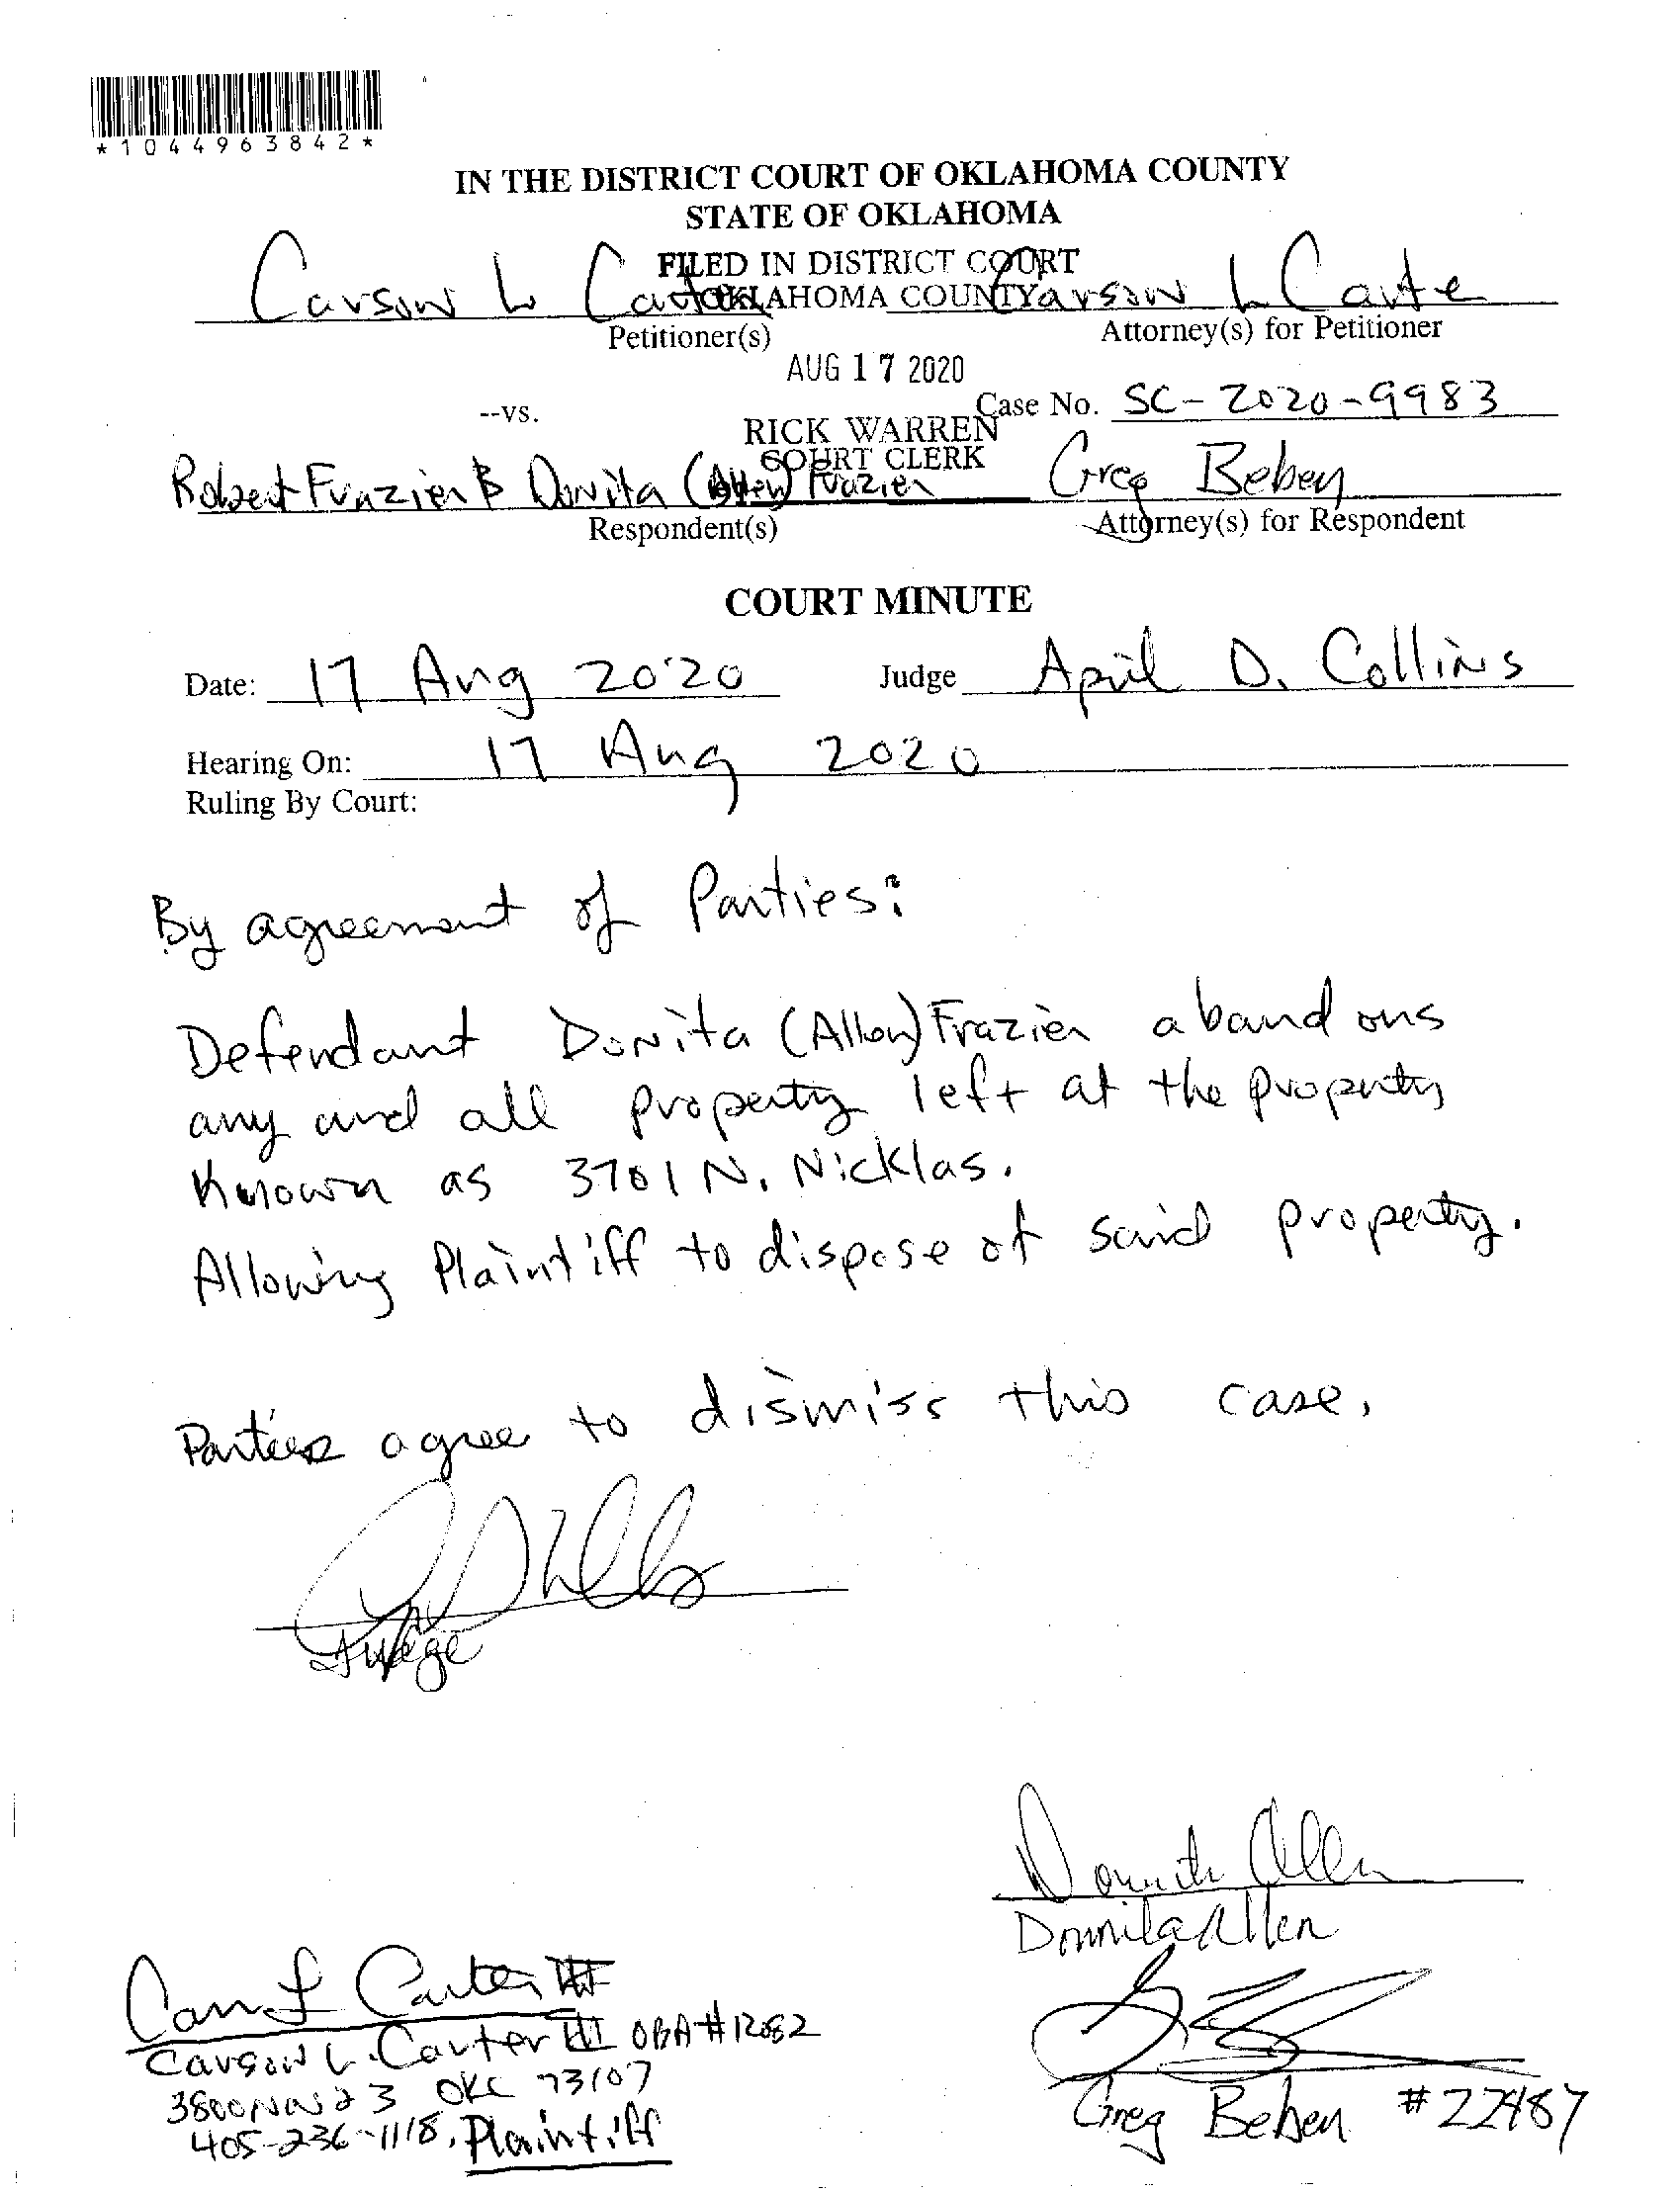 *1044963842*
IN THE DISTRICT COURT OF OKLAHOMA COUNTY
STATE OF OKLAHOMA
FILED IN DISTRICT COURT
OKLAHOMA COUNTY
Carson L Carter
Carson L Carte
Petitioner(s)
Attorney(s) for Petitioner
AUG 17 2020
--vs.
Case No. SC-2020-9983
RICK WARREN
COURT CLERK
Robert Frazier & Donita (Allen) Frazier
Greg Beben
Respondent(s)
Attorney(s) for Respondent
COURT MINUTE
Date: 17 Aug 2020 Judge April D. Collins
Hearing On: 17 Aug 2020
Ruling By Court:
By agreement of Parties:
Defendant Donita (Allen) Frazier abandons
any and all property left at the property
Known as 3701 N. Nicklas.
Allowing Plaintiff to dispose of said property.
Parties agree to dismiss this case.
Judge
Donnita Allen
Carson L. Carter III
Carson L. Carter III OBA #12082
3800 NW 23 OKC 73107
405-236-1118, Plaintiff
Greg Beben #22487